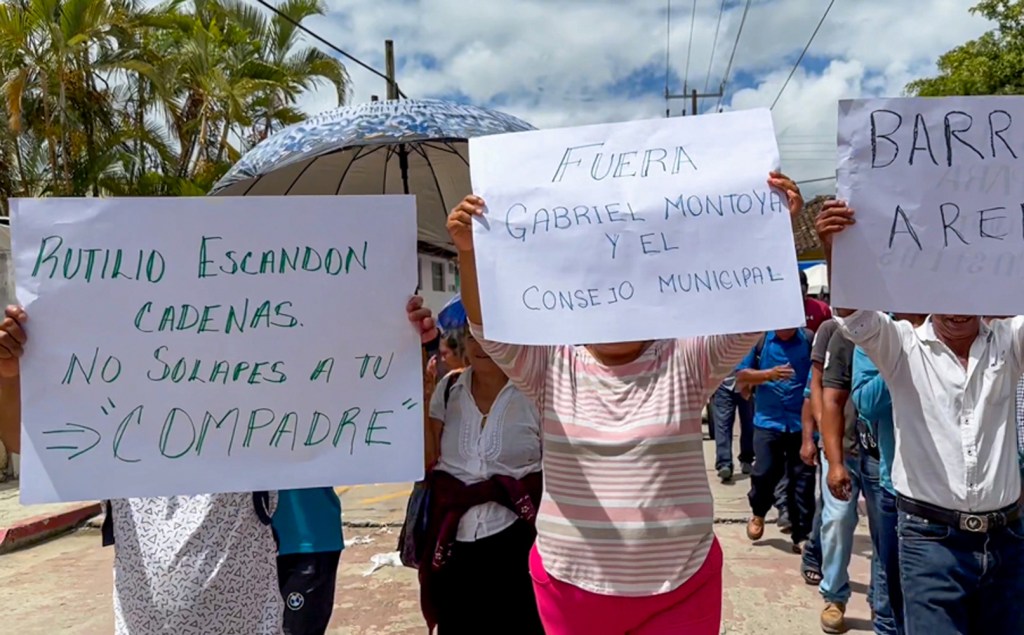 RUTILIO ESCANDON
CADENAS.
NO SOLAPES A TU
⇒ "COMPADRE"
FUERA
GABRIEL MONTOYA
Y EL
CONSEJO MUNICIPAL
BARR
ARE